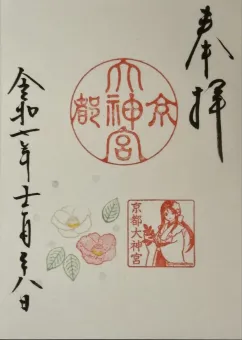 奉拝
京都大神宮
京都大神宮
令和七年十二月八日